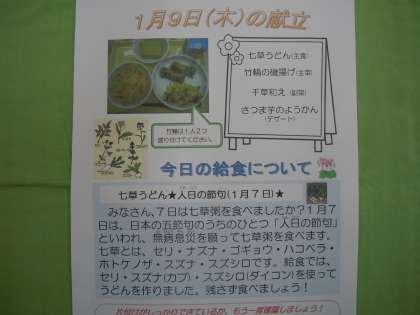 1月9日(木)の献立
七草うどん(主食)
竹輪の磯揚げ(主菜)
千草和え(副菜)
さつま芋のようかん
(デザート)
竹輪は1人2つ
盛り付けてください。
今日の給食について
七草うどん★人日の節句(1月7日)★
みなさん、7日は七草粥を食べましたか?1月7
日は、日本の五節句のうちのひとつ「人日の節句」
といわれ、無病息災を願って七草粥を食べます。
七草とは、セリ・ナズナ・ゴギョウ・ハコベラ・
ホトケノザ・スズナ・スズシロです。給食では、
セリ・スズナ(カブ)・スズシロ(ダイコン)を使って
うどんを作りました。残さず食べましょう!
片付けがしっかりできているか、もう一度確認しましょう!